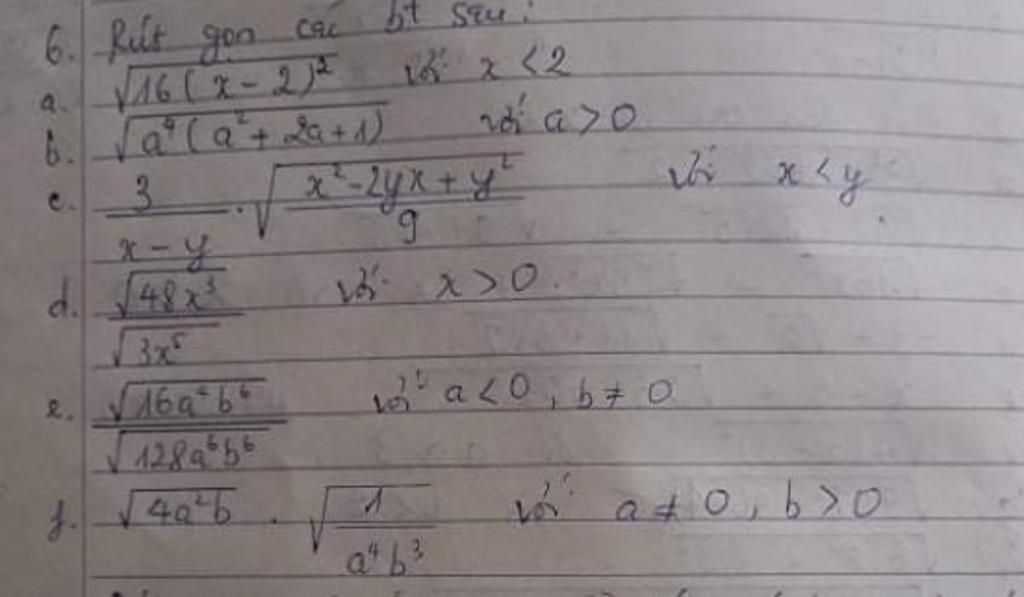 6. Rút gọn các bt sau:
a. √16(x-2)² với x < 2
b. √a⁴(a²+2a+1) với a > 0
c. 3/(x-y) · √((x²-2yx+y²)/9) với x < y
d. √48x³/√3x⁵ với x > 0
e. √16a⁴b⁶/√128a⁶b⁶ với a < 0, b ≠ 0
f. √4a²b · √(1/(a⁴b³)) với a ≠ 0, b > 0